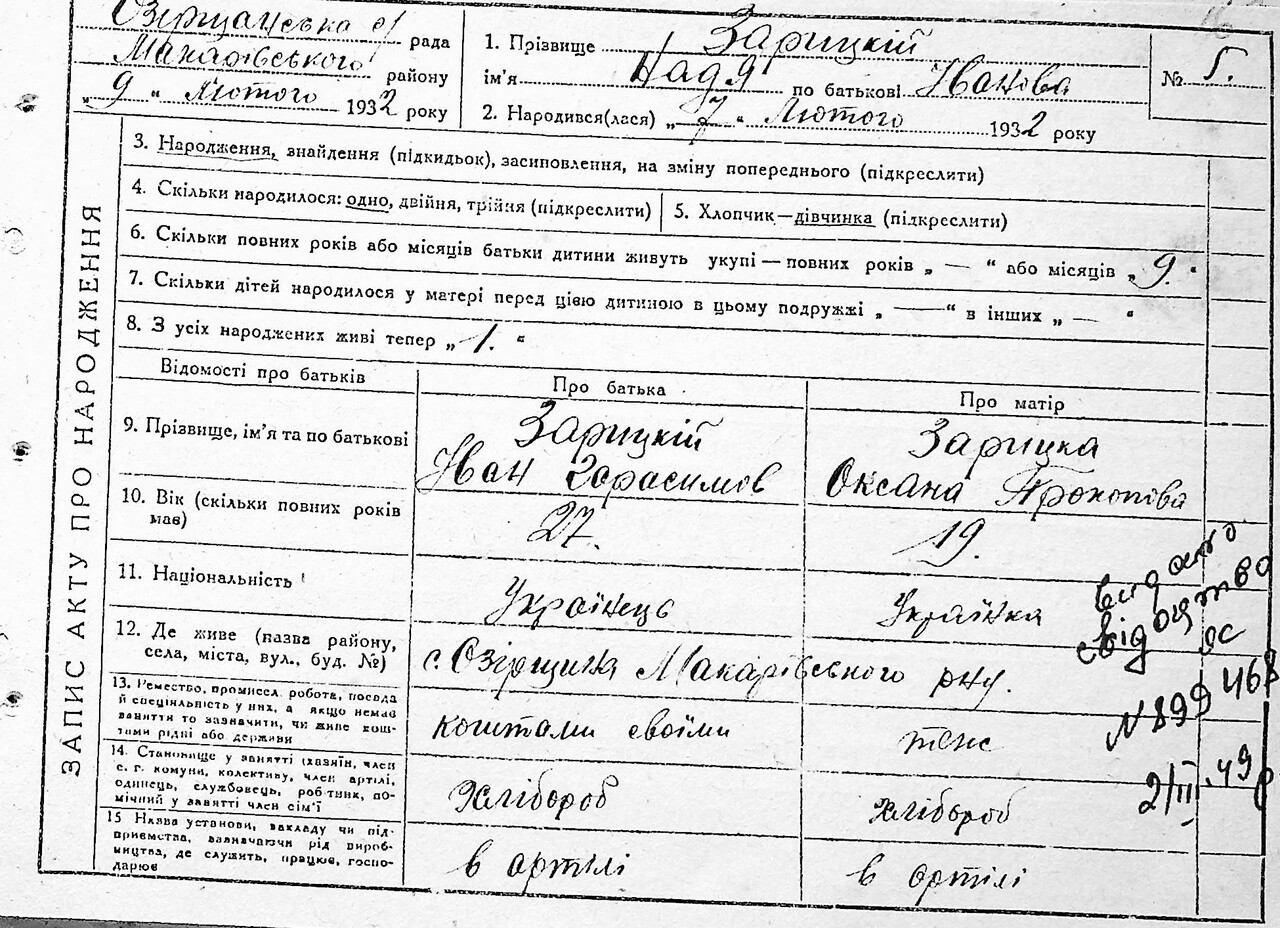 Озірщанська с/ рада
Макарівського району
„ 9 " Лютого 1932 року
1. Прізвище Зарицкій
ім'я Надя по батькові Іванова
2. Народився(лася) „ 7 " Лютого 1932 року
№ 5.
ЗАПИС АКТУ ПРО НАРОДЖЕННЯ
3. Народження, знайдення (підкидьок), засиповлення, на зміну попереднього (підкреслити)
4. Скільки народилося: одно, двійня, трійня (підкреслити)
5. Хлопчик—дівчинка (підкреслити)
6. Скільки повних років або місяців батьки дитини живуть укупі — повних років „ — " або місяців „ 9. "
7. Скільки дітей народилося у матері перед цією дитиною в цьому подружжі „ —— " в інших „ — "
8. З усіх народжених живі тепер „ 1. "
Відомості про батьків
Про батька
Про матір
9. Прізвище, ім'я та по батькові
Зарицкій
Іван Гарасимов
Зарицка
Оксана Прокопова
10. Вік (скільки повних років
мав)
27.
19.
11. Національність
Українець
Українка
12. Де живе (назва району,
села, міста, вул., буд. №)
с. Озірщина Макарівського р-ну.
13. Ремество, промисел, робота, посада
й спеціяльність у них, а якщо немає
заняття то зазначити, чи живе кош-
тами рідні або держави
коштами своїми
теж
14. Становище у занятті (хазяїн, член
с. г. комуни, колективу, член артілі,
одинець, службовець, робітник, по-
мічний у занятті член сім'ї
Хлібороб
хлібороб
15 Назва установи, закладу чи під-
приємства, зазначаючи рід вироб-
ництва, де служить, працює, госпо-
дарює
в артілі
в артілі
видано
свідоцтво
ЯС
N 899468
2/III.49р